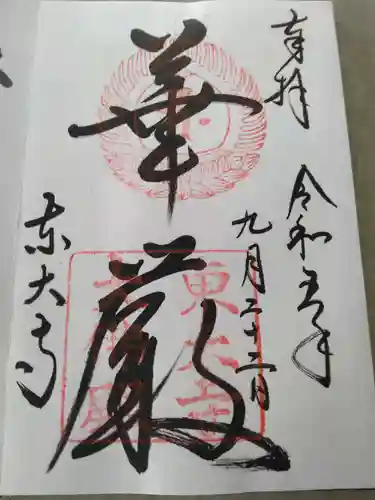 奉拝
令和五年
九月二十二日
華厳
東大寺